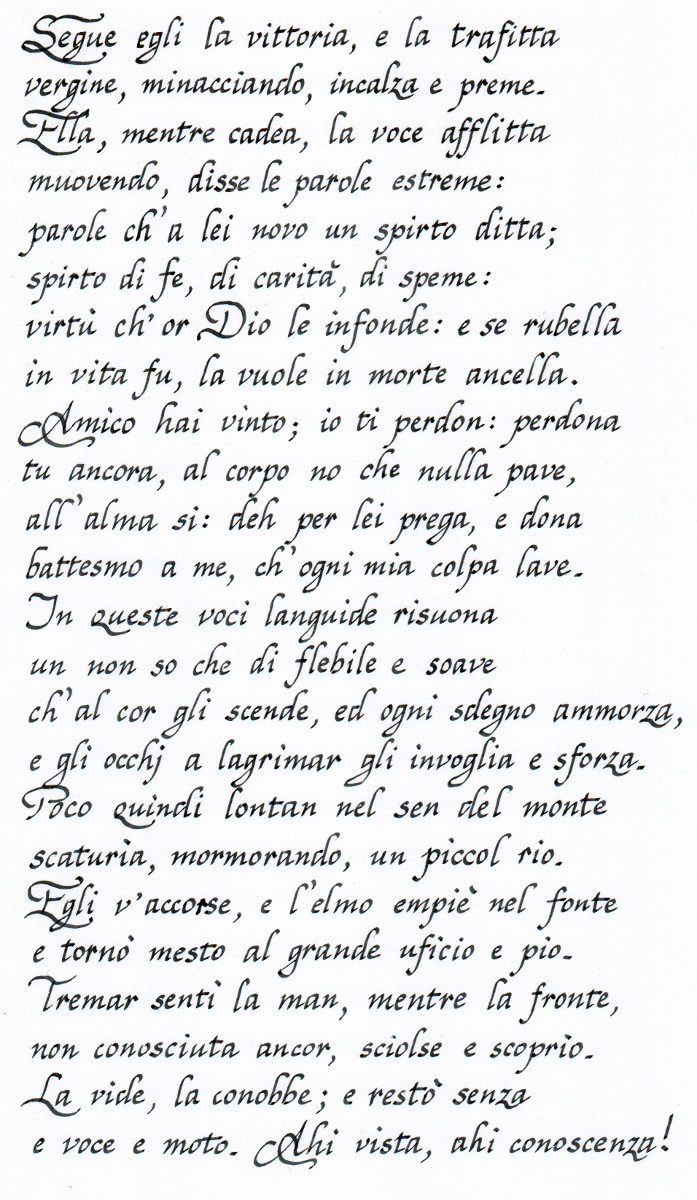 Segue egli la vittoria, e la trafitta
vergine, minacciando, incalza e preme.
Ella, mentre cadea, la voce afflitta
muovendo, disse le parole estreme:
parole ch'a lei novo un spirto ditta;
spirto di fe, di carità, di speme:
virtù ch'or Dio le infonde: e se rubella
in vita fu, la vuole in morte ancella.
Amico hai vinto; io ti perdon: perdona
tu ancora, al corpo no che nulla pave,
all'alma si: deh per lei prega, e dona
battesmo a me, ch'ogni mia colpa lave.
In queste voci languide risuona
un non so che di flebile e soave
ch'al cor gli scende, ed ogni sdegno ammorza,
e gli occhj a lagrimar gli invoglia e sforza.
Poco quindi lontan nel sen del monte
scaturia, mormorando, un piccol rio.
Egli v'accorse, e l'elmo empiè nel fonte
e tornò mesto al grande uficio e pio.
Tremar sentì la man, mentre la fronte,
non conosciuta ancor, sciolse e scoprio.
La vide, la conobbe; e restò senza
e voce e moto. Ahi vista, ahi conoscenza!